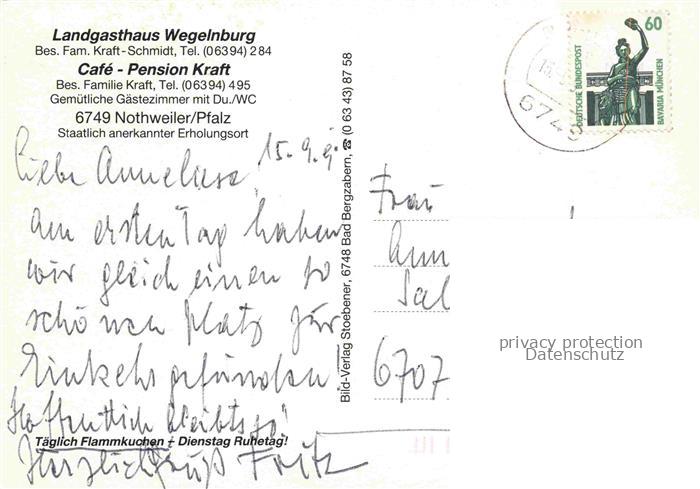 Landgasthaus Wegelnburg
Bes. Fam. Kraft-Schmidt, Tel. (06394) 284
Café - Pension Kraft
Bes. Familie Kraft, Tel. (06394) 495
Gemütliche Gästezimmer mit Du./WC
6749 Nothweiler/Pfalz
Staatlich anerkannter Erholungsort
15.9.9
Liebe Anneliese
am ersten Tag haben
wir gleich einen so
schönen Platz zur
Einkehr gefunden
Hoffentlich bleibts so
Täglich Flammkuchen – Dienstag Ruhetag!
Fritz
Bild-Verlag Stoebener, 6748 Bad Bergzabern, ☎ (0 63 43) 87 58
60
DEUTSCHE BUNDESPOST
BAVARIA MÜNCHEN
6749
Frau
Ann
Sal
6707
privacy protection
Datenschutz